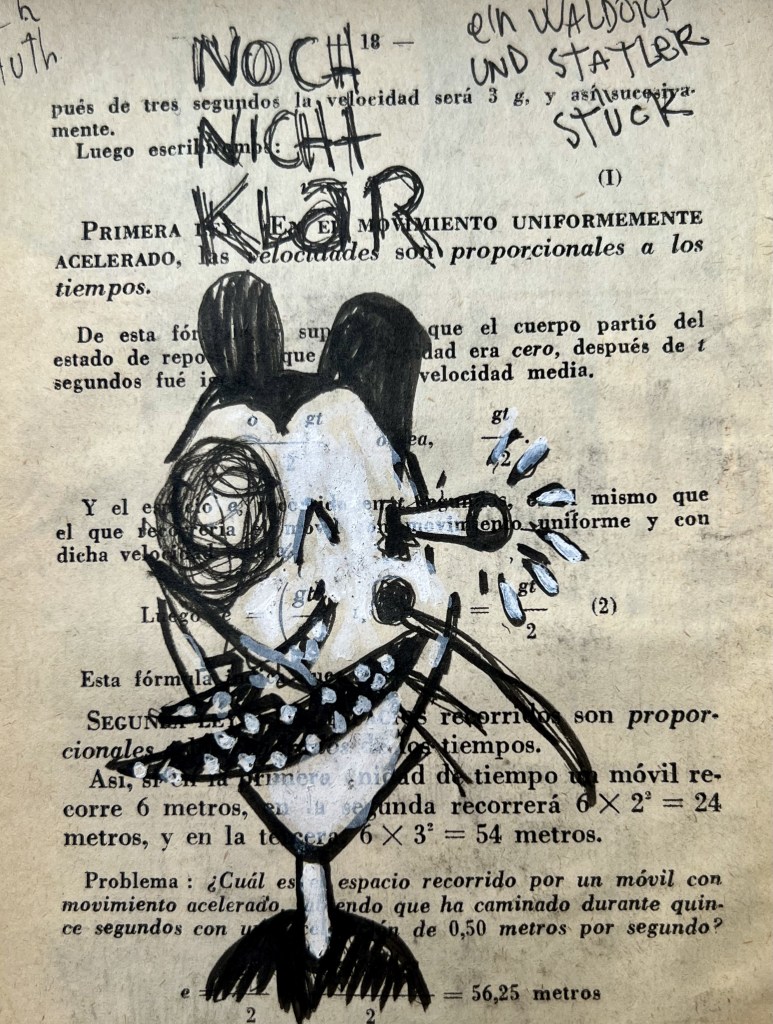 NOCH
NICHT
KLAR
EIN WALDORF
UND STATLER
STÜCK
18 —
pués de tres segundos la velocidad será 3 g, y así sucesiva-
mente.
Luego escribiremos:
(I)
PRIMERA LEY. EN EL MOVIMIENTO UNIFORMEMENTE
ACELERADO, las velocidades son proporcionales a los
tiempos.
De esta que el cuerpo partió del
estado de que era cero, después de t
segundos fué velocidad media.
o gt gt
2 2
Y el en t segundos, mismo que
el que recorrería movimiento uniforme y con
dicha
Luego e = ( gt = gt (2)
2
Esta fórmula
SEGUNDA LEY recorridos son propor-
cionales los tiempos.
Así, si en la primera unidad de tiempo un móvil re-
corre 6 metros, en la segunda recorrerá 6 × 2² = 24
metros, y en la tercera 6 × 3² = 54 metros.
Problema : ¿Cuál es el espacio recorrido por un móvil con
movimiento acelerado, sabiendo que ha caminado durante quin-
ce segundos con una aceleración de 0,50 metros por segundo?
e = = 56,25 metros
2 2